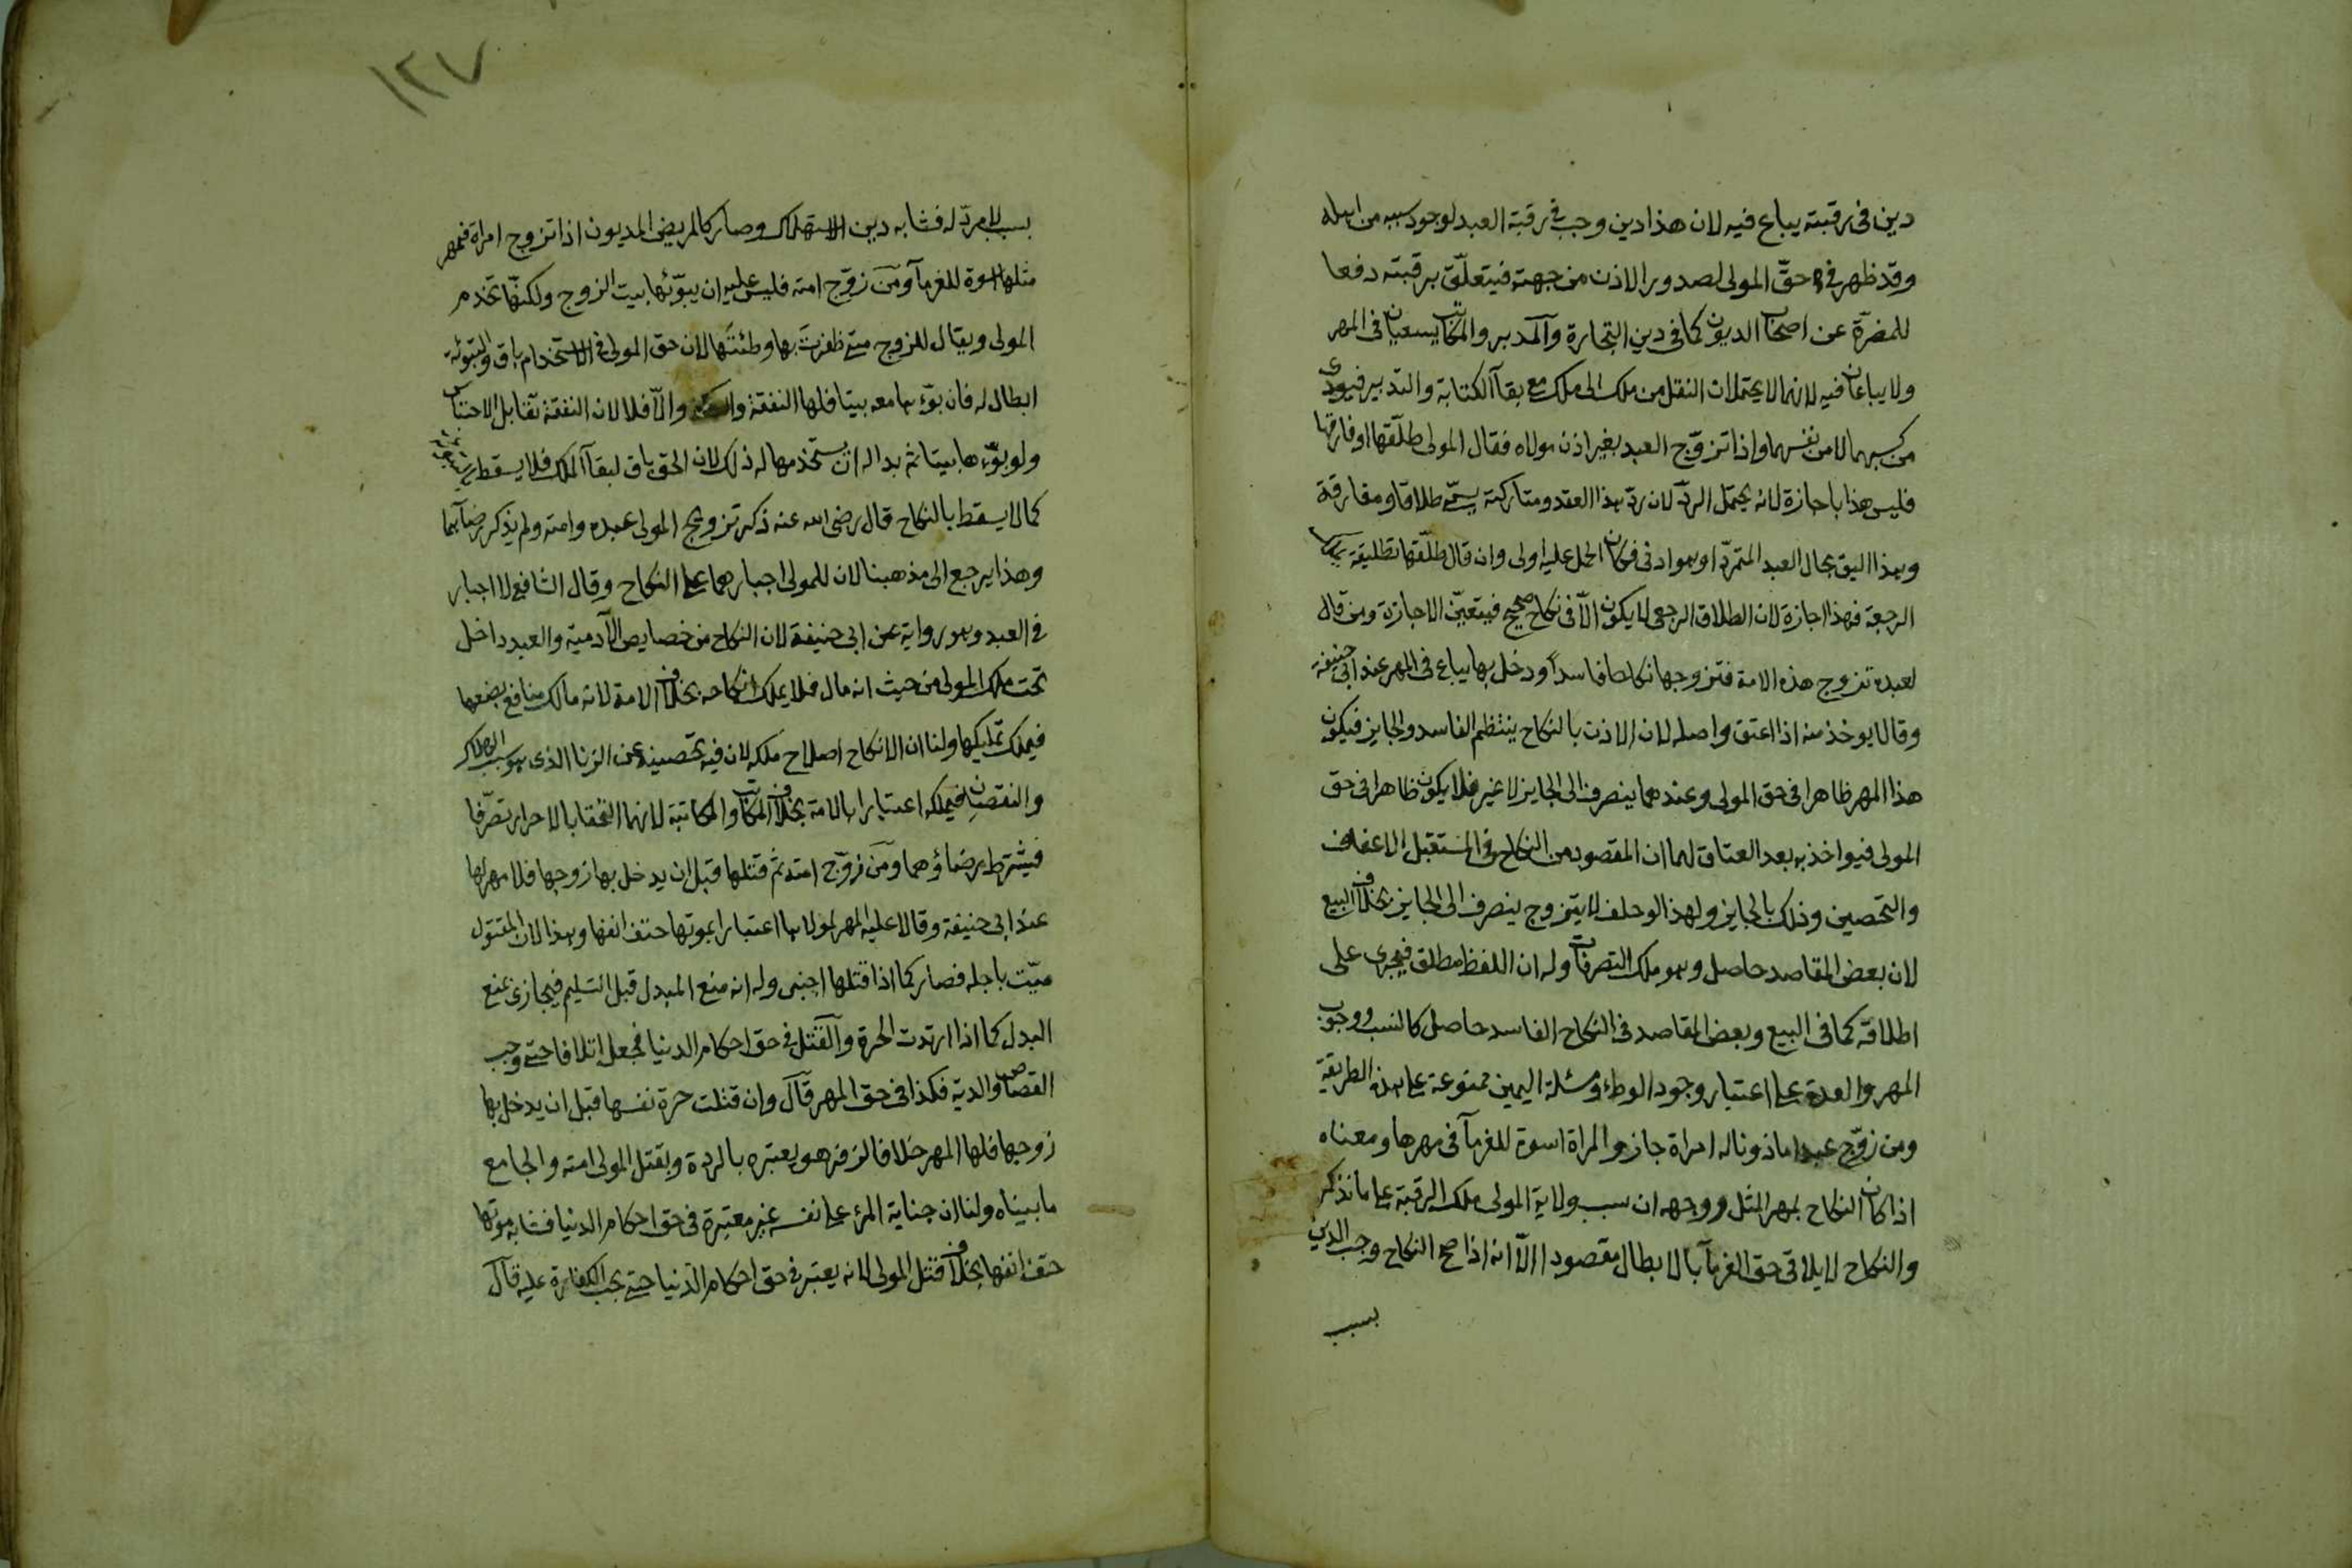 دين فى رقبته يباع فيه لان هذا دين وجب فى رقبة العبد لوجود سببه من اهله
وقد ظهر فى حقّ المولى لصدور الاذن من جهته فيتعلّق برقبته دفعا
للمضرّة عن اصحاب الديون كما فى دين التجارة والمدبر والمكاتب يسعيان فى المهر
ولا يباعان فيه لانهما لا يحتملان النقل من ملك الى ملك مع بقآ الكتابة والتدبير فيودى
من كسبهما لا من نفسهما واذا تزوّج العبد بغير اذن مولاه فقال المولى طلّقها او فارقها
فليس هذا باجازة لانه يحتمل الردّ لان ردّ هذا العقد ومتاركته يسمّى طلاقا ومفارقة
وهذا اليق بحال العبد المتمرّد او هو ادنى فكان الحمل عليه اولى وان قال طلّقها تطليقة تملك
الرجعة فهذا اجازة لان الطلاق الرجعى لا يكون الّا فى نكاح صحيح فيتعيّن الاجازة ومن قال
لعبده تزوج هذه الامة فتزوجها نكاحا فاسداً ودخل بها يباع فى المهر عند ابى حنيفة
وقالا يوخذ منه اذا اعتق واصله لان الاذن بالنكاح ينتظم الفاسد والجايز فيكون
هذا المهر ظاهرا فى حق المولى وعندهما ينصرف الى الجايز لا غير فلا يكون ظاهرا فى حق
المولى فيواخذ به بعد العتاق لهما ان المقصود من النكاح فى المستقبل الاعفاف
والتحصين وذلك بالجايز ولهذا لو حلف لا يتزوج ينصرف الى الجايز بخلاف البيع
لان بعض المقاصد حاصل وهو ملك التصرفات وله ان اللفظ مطلق فيجرى على
اطلاقه كما فى البيع وبعض المقاصد فى النكاح الفاسد حاصل كالنسب ووجوب
المهر والعدة على اعتبار وجود الوطء ومسئلة اليمين ممنوعة على هذه الطريقة
ومن زوّج عبدا ماذونا له امراة جاز والمراة اسوة للغرمآ فى مهرها ومعناه
اذا كان النكاح بمهر المثل ووجهه ان سبب ولاية المولى ملك الرقبة على ما نذكر
والنكاح لا يلاقى حق الغرمآ بالابطال مقصودا الّا انه اذا صح النكاح وجب الدين
بسبب
١٢٧
بسبب لا مردّ له فشابه دين الاستهلاك وصار كالمريض المديون اذا تزوج امراة فمهر
مثلها اسوة للغرمآ ومن زوّج امته فليس عليه ان يبوّئها بيت الزوج ولكنّها تخدم
المولى ويقال للزوج متى ظفرت بها وطئتها لان حق المولى فى الاستخدام باق والتبوئة
ابطال له فان بوّء بها معه بيتا فلها النفقة والسكنى والّا فلا لان النفقة تقابل الاحتباس
ولو بوّءها بيتا ثم بدا له ان يستخدمها له ذلك لان الحق باق لبقآ الملك فلا يسقط
كما لا يسقط بالنكاح قال رضى الله عنه ذكر تزويج المولى عبده وامته ولم يذكر رضآهما
وهذا يرجع الى مذهبنا لان للمولى اجبارهما على النكاح وقال الشافعى لا اجبار
فى العبد وهو رواية عن ابى حنيفة لان النكاح من خصايص الآدمية والعبد داخل
تحت ملك المولى من حيث انه مال فلا يملك انكاحه بخلاف الامة لانه مالك منافع بضعها
فيملك تمليكها ولنا ان الانكاح اصلاح ملكه لان فيه تحصينه عن الزنا الذى هو سبب الهلاك
والنقصان فيملكه اعتبارا بالامة بخلاف المكاتب والمكاتبة لانهما التحقا بالاحرار تصرّفا
فيشترط رضاؤهما ومن زوّج امته ثم قتلها قبل ان يدخل بها زوجها فلا مهر لها
عند ابى حنيفة وقالا عليه المهر لمولاها اعتبارا بموتها حتف انفها وهذا لان المقتول
ميّت باجله فصار كما اذا قتلها اجنبى وله انه منع المبدل قبل التسليم فيجازى بمنع
البدل كما اذا ارتدت الحرة والقتل فى حق احكام الدنيا فجعل اتلافا حتى وجب
القصاص والدية فكذا فى حق المهر قال وان قتلت حرة نفسها قبل ان يدخل بها
زوجها فلها المهر خلافا لزفر هو يعتبره بالردة وبقتل المولى امته والجامع
ما بيناه ولنا ان جناية المرء على نفسه غير معتبرة فى حق احكام الدنيا فشابه موتها
حتف انفها بخلاف قتل المولى لانه يعتبر فى حق احكام الدّنيا حتى يجب الكفارة عليه قال